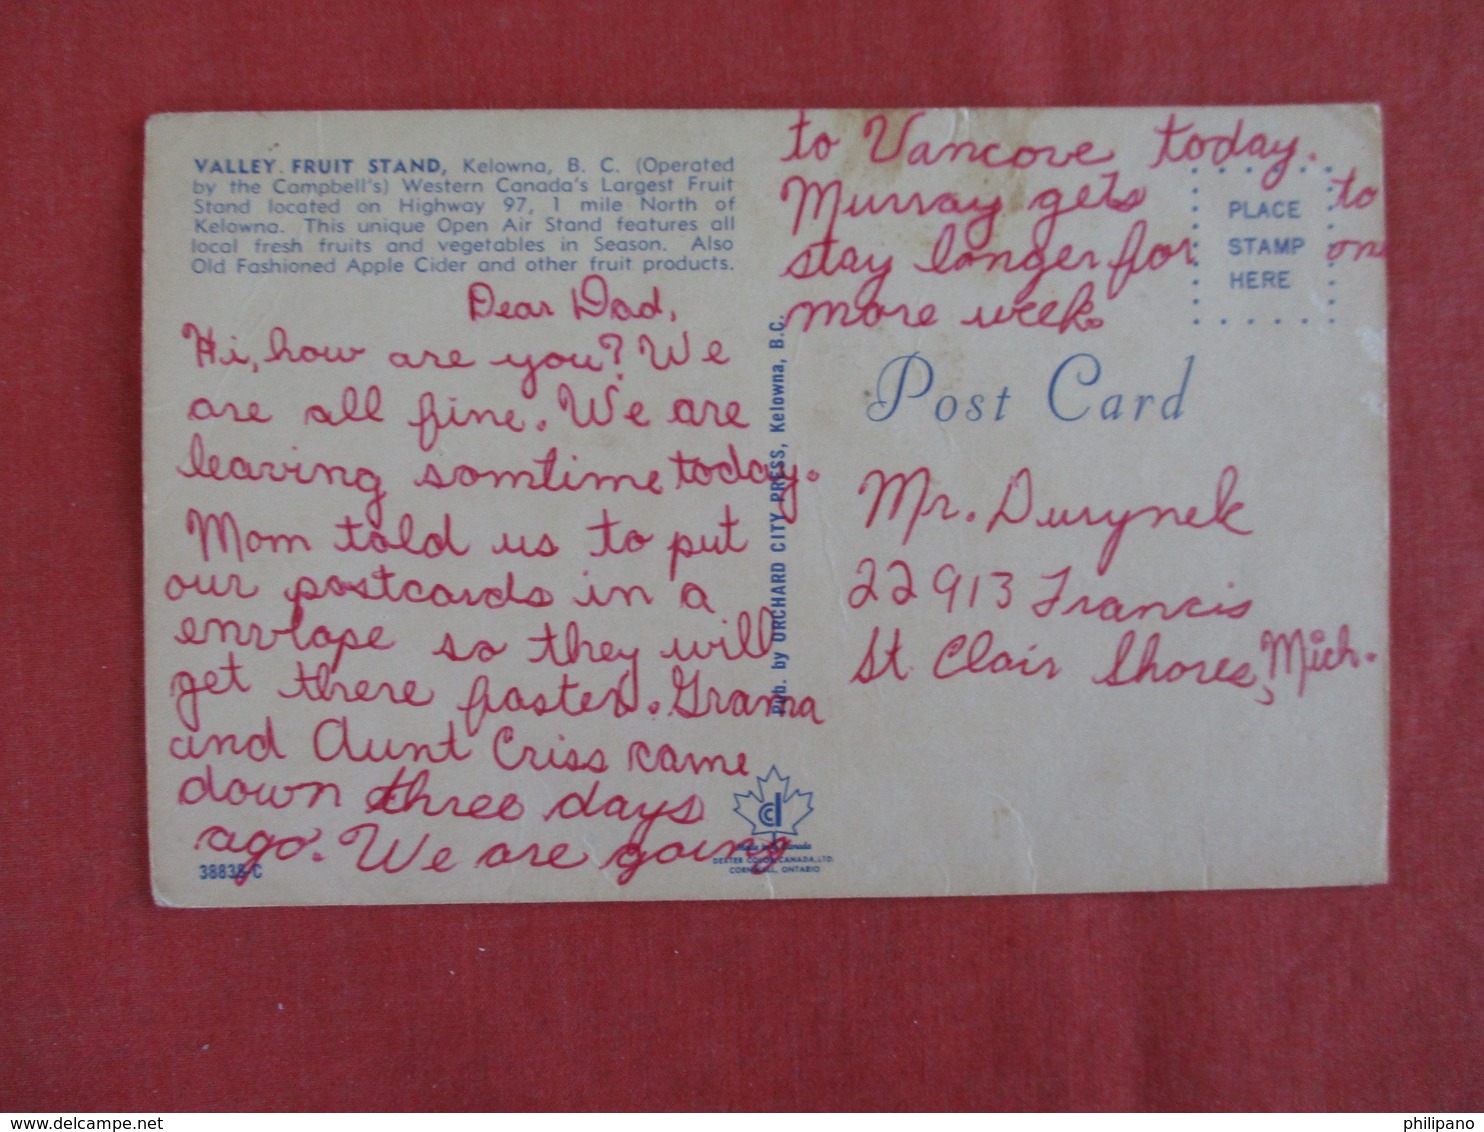 VALLEY FRUIT STAND, Kelowna, B. C. (Operated
by the Campbell's) Western Canada's Largest Fruit
Stand located on Highway 97, 1 mile North of
Kelowna. This unique Open Air Stand features all
local fresh fruits and vegetables in Season. Also
Old Fashioned Apple Cider and other fruit products.
Dear Dad,
Hi, how are you? We
are all fine. We are
leaving somtime today.
Mom told us to put
our postcards in a
envlope so they will
get there faster. Grama
and Aunt Criss came
down three days
ago. We are going
38838-C
Pub. by ORCHARD CITY PRESS, Kelowna, B.C.
Made in Canada
DEXTER COLOR CANADA, LTD.
CORNWALL, ONTARIO
to Vancove today.
Murray gets to
stay longer for one
more week.
PLACE
STAMP
HERE
Post Card
Mr. Durynek
22913 Francis
St. Clair Shores, Mich.
www.delcampe.net
philipano